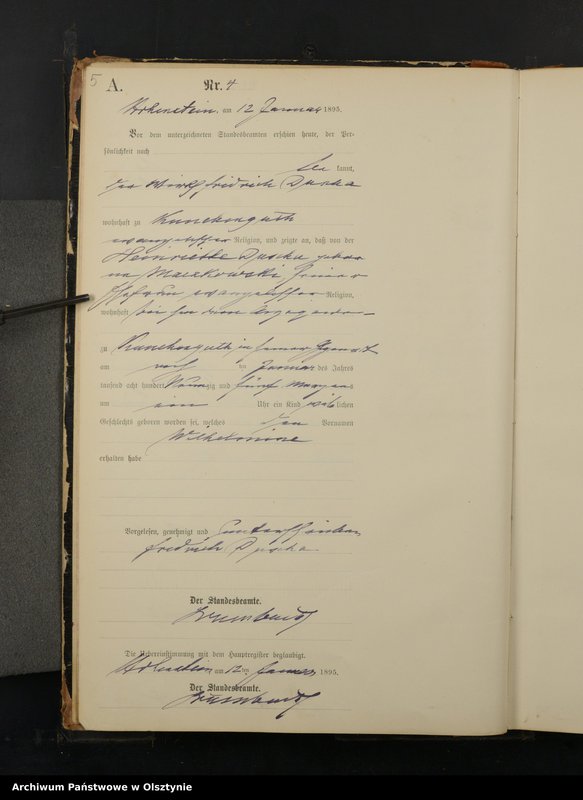 5
A.
Nr. 4
Hohenstein am 12 Januar 1895.
Vor dem unterzeichneten Standesbeamten erschien heute, der Per-
sönlichkeit nach
be kannt,
der Wirth Friedrich Duska
wohnhaft zu Kunchenguth
evangelischer Religion, und zeigte an, daß von der
Heinriette Duska gebor
ne Maczkowski seiner
Ehefrau evangelischer Religion,
wohnhaft bei ihm dem Anzeigenden
zu Kunchenguth in seiner Gegenwart
am ten Januar des Jahres
tausend acht hundert Neunzig und fünf Morgens
um ein Uhr ein Kind weiblichen
Geschlechts geboren worden sei, welches den Vornamen
Wilhelmine
erhalten habe
Vorgelesen, genehmigt und unterschrieben
Friedrich Duska
Der Standesbeamte.
Die Uebereinstimmung mit dem Hauptregister beglaubigt.
Hohenstein am 12 ten Januar 1895.
Der Standesbeamte.
Archiwum Państwowe w Olsztynie